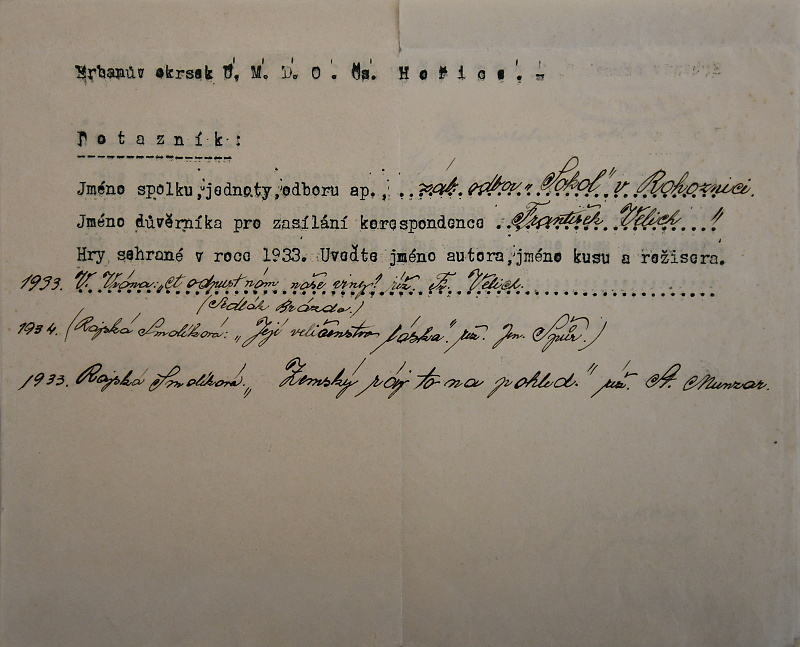 Erbanův okrsek Ú. M. D. O. Čs. Hořice. -
Dotazník:
Jméno spolku, jednoty, odboru ap., záb. odbor „Sokol" v Rohoznici.
Jméno důvěrníka pro zasílání korespondence František Velich "
Hry sehrané v roce 1933. Uveďte jméno autora, jméno kusu a režisera.
1933. V. Vrána: „A odpusť nám naše viny!" rež. Fr. Velich.
(Sedlák Brázda.)
1934. (Rajská Smolíková: „Její veličenstvo láska." rež. Jos. Špůr.)
1933. Rajská Smolíková: „Zemský ráj to na pohled." rež. St. Munzar.